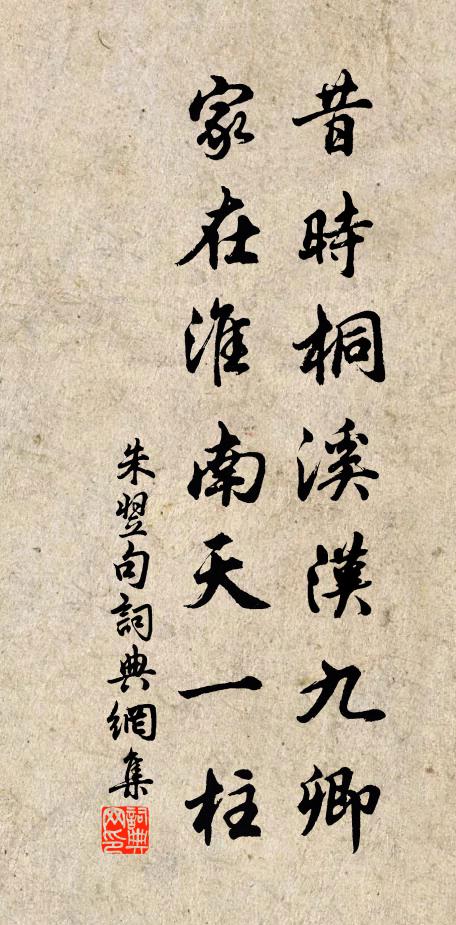 昔時桐溪漢九卿
家在淮南天一柱
朱翌句詞典網集
詞典網印